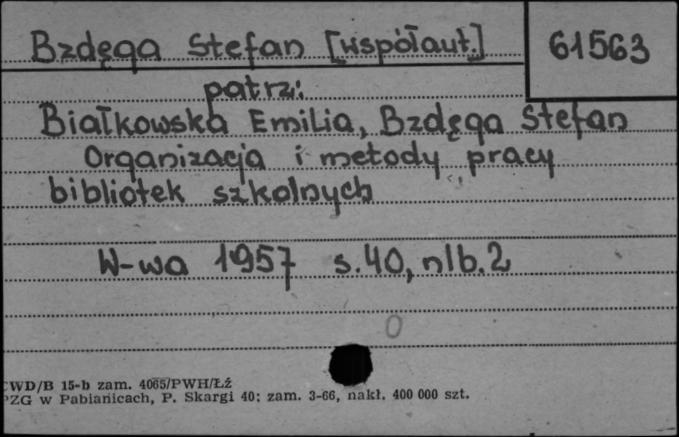 Bzdęga Stefan [współaut.] 61563
patrz:
Białkowska Emilia, Bzdęga Stefan
Organizacja i metody pracy
bibliotek szkolnych
W-wa 1957 s. 40, nlb. 2
0
CWD/B 15-b zam. 4065/PWH/Łź
PZG w Pabianicach, P. Skargi 40; zam. 3-66, nakł. 400 000 szt.